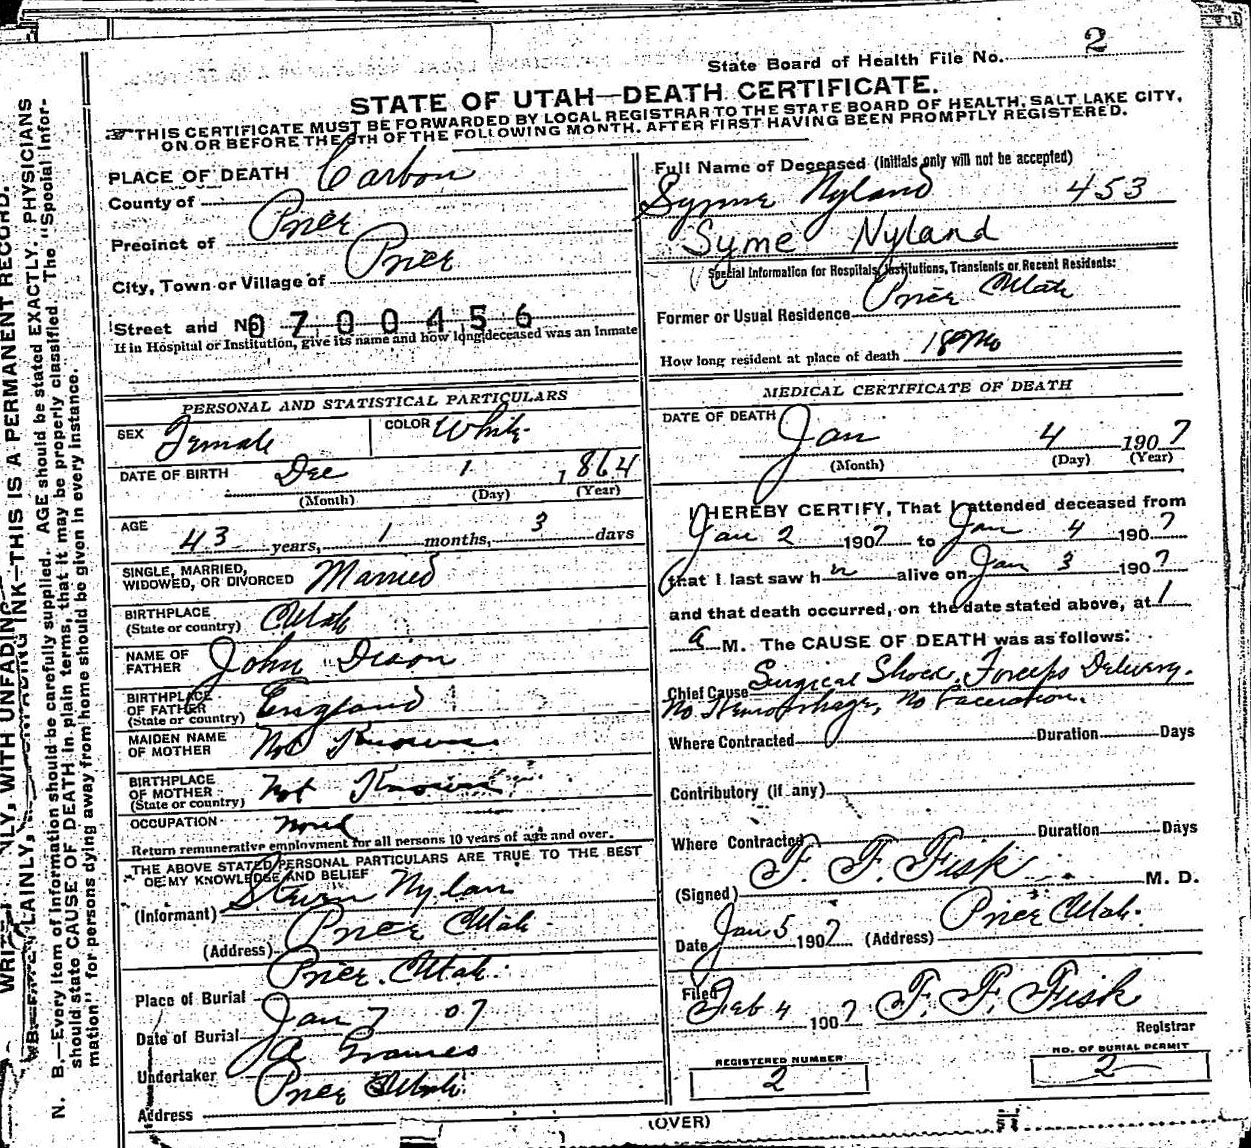 State Board of Health File No. 2
STATE OF UTAH—DEATH CERTIFICATE.
THIS CERTIFICATE MUST BE FORWARDED BY LOCAL REGISTRAR TO THE STATE BOARD OF HEALTH, SALT LAKE CITY,
ON OR BEFORE THE 5TH OF THE FOLLOWING MONTH, AFTER FIRST HAVING BEEN PROMPTLY REGISTERED.
PLACE OF DEATH
County of Carbon
Precinct of Price
City, Town or Village of Price
Street and No. 0700456
If in Hospital or Institution, give its name and how long deceased was an Inmate
PERSONAL AND STATISTICAL PARTICULARS
SEX Female COLOR White
DATE OF BIRTH Dec 1, 1864
(Month) (Day) (Year)
AGE 43 years, 1 months, 3 days
SINGLE, MARRIED,
WIDOWED, OR DIVORCED Married
BIRTHPLACE
(State or country) Utah
NAME OF
FATHER John Dixon
BIRTHPLACE
OF FATHER
(State or country) England
MAIDEN NAME
OF MOTHER Not Known
BIRTHPLACE
OF MOTHER
(State or country) Not Known
OCCUPATION None
Return remunerative employment for all persons 10 years of age and over.
THE ABOVE STATED PERSONAL PARTICULARS ARE TRUE TO THE BEST
OF MY KNOWLEDGE AND BELIEF
(Informant)
(Address) Price Utah
Place of Burial Price. Utah.
Date of Burial Jan 7 07
Undertaker
Address Price Utah.
Full Name of Deceased (Initials only will not be accepted)
Nyland 453
Syme Nyland
Special Information for Hospitals, Institutions, Transients or Recent Residents:
Former or Usual Residence Price Utah
How long resident at place of death 18 Mo
MEDICAL CERTIFICATE OF DEATH
DATE OF DEATH Jan 4 1907
(Month) (Day) (Year)
I HEREBY CERTIFY, That I attended deceased from
Jan 2 1907 to Jan 4 1907
that I last saw her alive on Jan 3 1907
and that death occurred, on the date stated above, at 1
a M. The CAUSE OF DEATH was as follows:
Chief Cause Surgical Shock, Forceps Delivery.
No Hemorrhage, No Laceration.
Where Contracted Duration Days
Contributory (if any)
Where Contracted Duration Days
(Signed) F. F. Fisk M. D.
Date Jan 5 1907 (Address) Price Utah.
Filed Feb 4 1907 F. F. Fisk
Registrar
REGISTERED NUMBER
2
NO. OF BURIAL PERMIT
2
(OVER)
N. B.—Every item of information should be carefully supplied. AGE should be stated EXACTLY. PHYSICIANS
should state CAUSE OF DEATH in plain terms, that it may be properly classified. The "Special Infor-
mation" for persons dying away from home should be given in every instance.
WITH UNFADING INK—THIS IS A PERMANENT RECORD.